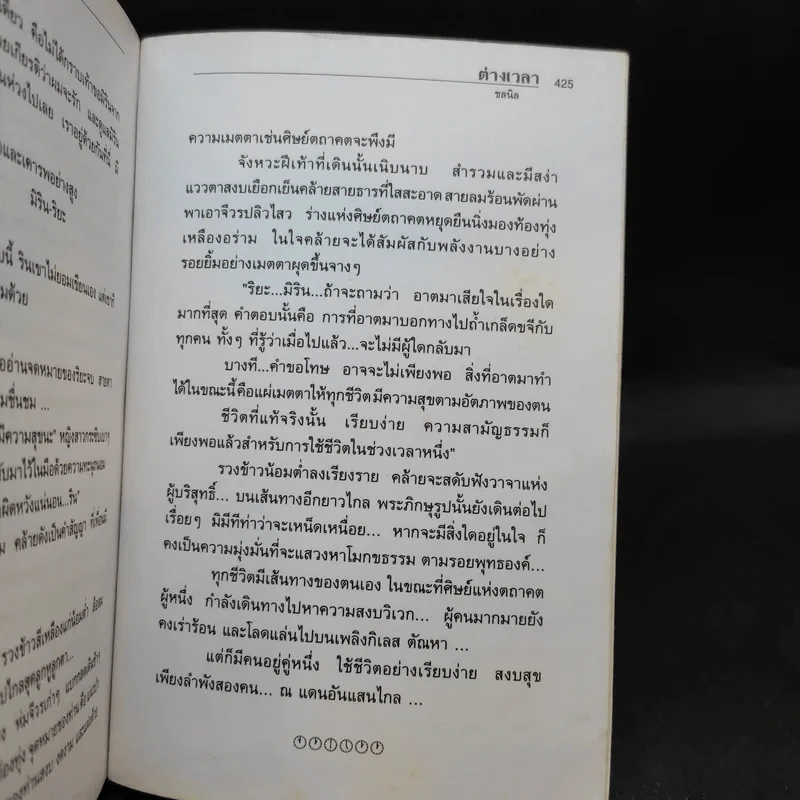 เดียว คือไม่ได้กราบเท้าขอมิรินจาก
ยเกียรติว่าผมจะรัก และดูแลมิริน
นห่วงไปเลย เราอยู่ด้วยกันที่นี่ มี
และเคารพอย่างสูง
มิริน-ริยะ
บนี้ รินเขาไม่ยอมเขียนเอง
มด้วย
ออ่านจดหมายของริยะจบ สายตา
มชื่นชม ...
มีความสุขนะ"
ผิดหวังแน่นอน...ริน"
ม คล้ายดังเป็นคำสัญญา
ต่างเวลา 425
ชลนิล
ความเมตตาเช่นศิษย์ตถาคตจะพึงมี
จังหวะฝีเท้าที่เดินนั้นเนิบนาบ สำรวมและมีสง่า
แววตาสงบเยือกเย็นคล้ายสายธารที่ใสสะอาด สายลมร้อนพัดผ่าน
พาเอาจีวรปลิวไสว ร่างแห่งศิษย์ตถาคตหยุดยืนนิ่งมองท้องทุ่ง
เหลืองอร่าม ในใจคล้ายจะได้สัมผัสกับพลังงานบางอย่าง
รอยยิ้มอย่างเมตตาผุดขึ้นจางๆ
"ริยะ...มิริน...ถ้าจะถามว่า อาตมาเสียใจในเรื่องใด
มากที่สุด คำตอบนั้นคือ การที่อาตมาบอกทางไปถ้ำเกล็ดขจีกับ
ทุกคน ทั้งๆ ที่รู้ว่าเมื่อไปแล้ว...จะไม่มีผู้ใดกลับมา
บางที...คำขอโทษ อาจจะไม่เพียงพอ สิ่งที่อาตมาทำ
ได้ในขณะนี้คือแผ่เมตตาให้ทุกชีวิตมีความสุขตามอัตภาพของตน
ชีวิตที่แท้จริงนั้น เรียบง่าย ความสามัญธรรมก็
เพียงพอแล้วสำหรับการใช้ชีวิตในช่วงเวลาหนึ่ง"
รวงข้าวน้อมต่ำลงเรียงราย คล้ายจะสดับฟังวาจาแห่ง
ผู้บริสุทธิ์... บนเส้นทางอีกยาวไกล พระภิกษุรูปนั้นยังเดินต่อไป
เรื่อยๆ มิมีทีท่าว่าจะเหน็ดเหนื่อย... หากจะมีสิ่งใดอยู่ในใจ ก็
คงเป็นความมุ่งมั่นที่จะแสวงหาโมกขธรรม ตามรอยพุทธองค์...
ทุกชีวิตมีเส้นทางของตนเอง ในขณะที่ศิษย์แห่งตถาคต
ผู้หนึ่ง กำลังเดินทางไปหาความสงบวิเวก... ผู้คนมากมายยัง
คงเร่าร้อน และโลดแล่นไปบนเพลิงกิเลส ตัณหา ...
แต่ก็มีคนอยู่คู่หนึ่ง ใช้ชีวิตอย่างเรียบง่าย สงบสุข
เพียงลำพังสองคน... ณ แดนอันแสนไกล ...